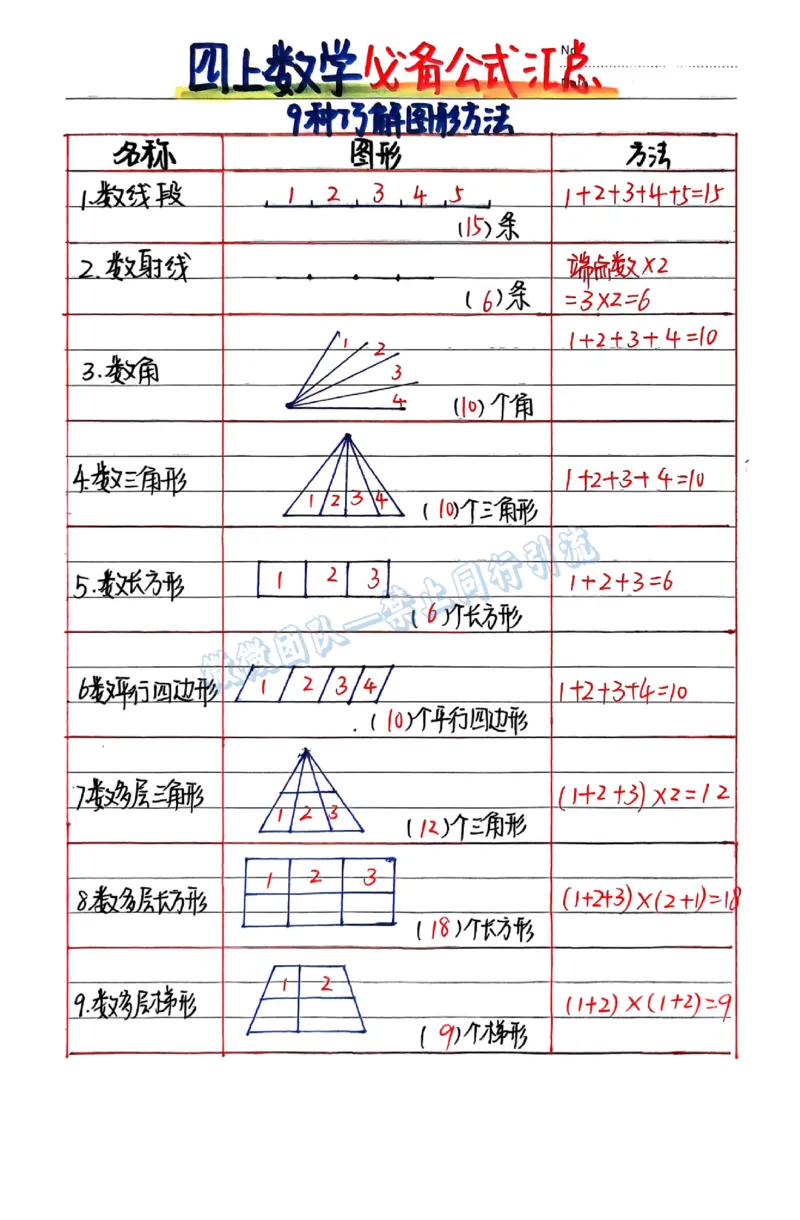 四上数学必备公式汇总
No
Date
9种巧解图形方法
名称 图形 方法
1.数线段 1 2 3 4 5 1+2+3+4+5=15
(15)条
2.数射线 端点数×2
(6)条 =3×2=6
1+2+3+4=10
3.数角 1 2 3 4
(10)个角
4.数三角形 1 2 3 4 1+2+3+4=10
(10)个三角形
5.数长方形 1 2 3 1+2+3=6
(6)个长方形
微微团队一禁止同行引流
6数平行四边形 1 2 3 4 1+2+3+4=10
(10)个平行四边形
7.数多层三角形 1 2 3 (1+2+3)×2=12
(12)个三角形
8.数多层长方形 1 2 3 (1+2+3)×(2+1)=18
(18)个长方形
9.数多层梯形 1 2 (1+2)×(1+2)=9
(9)个梯形